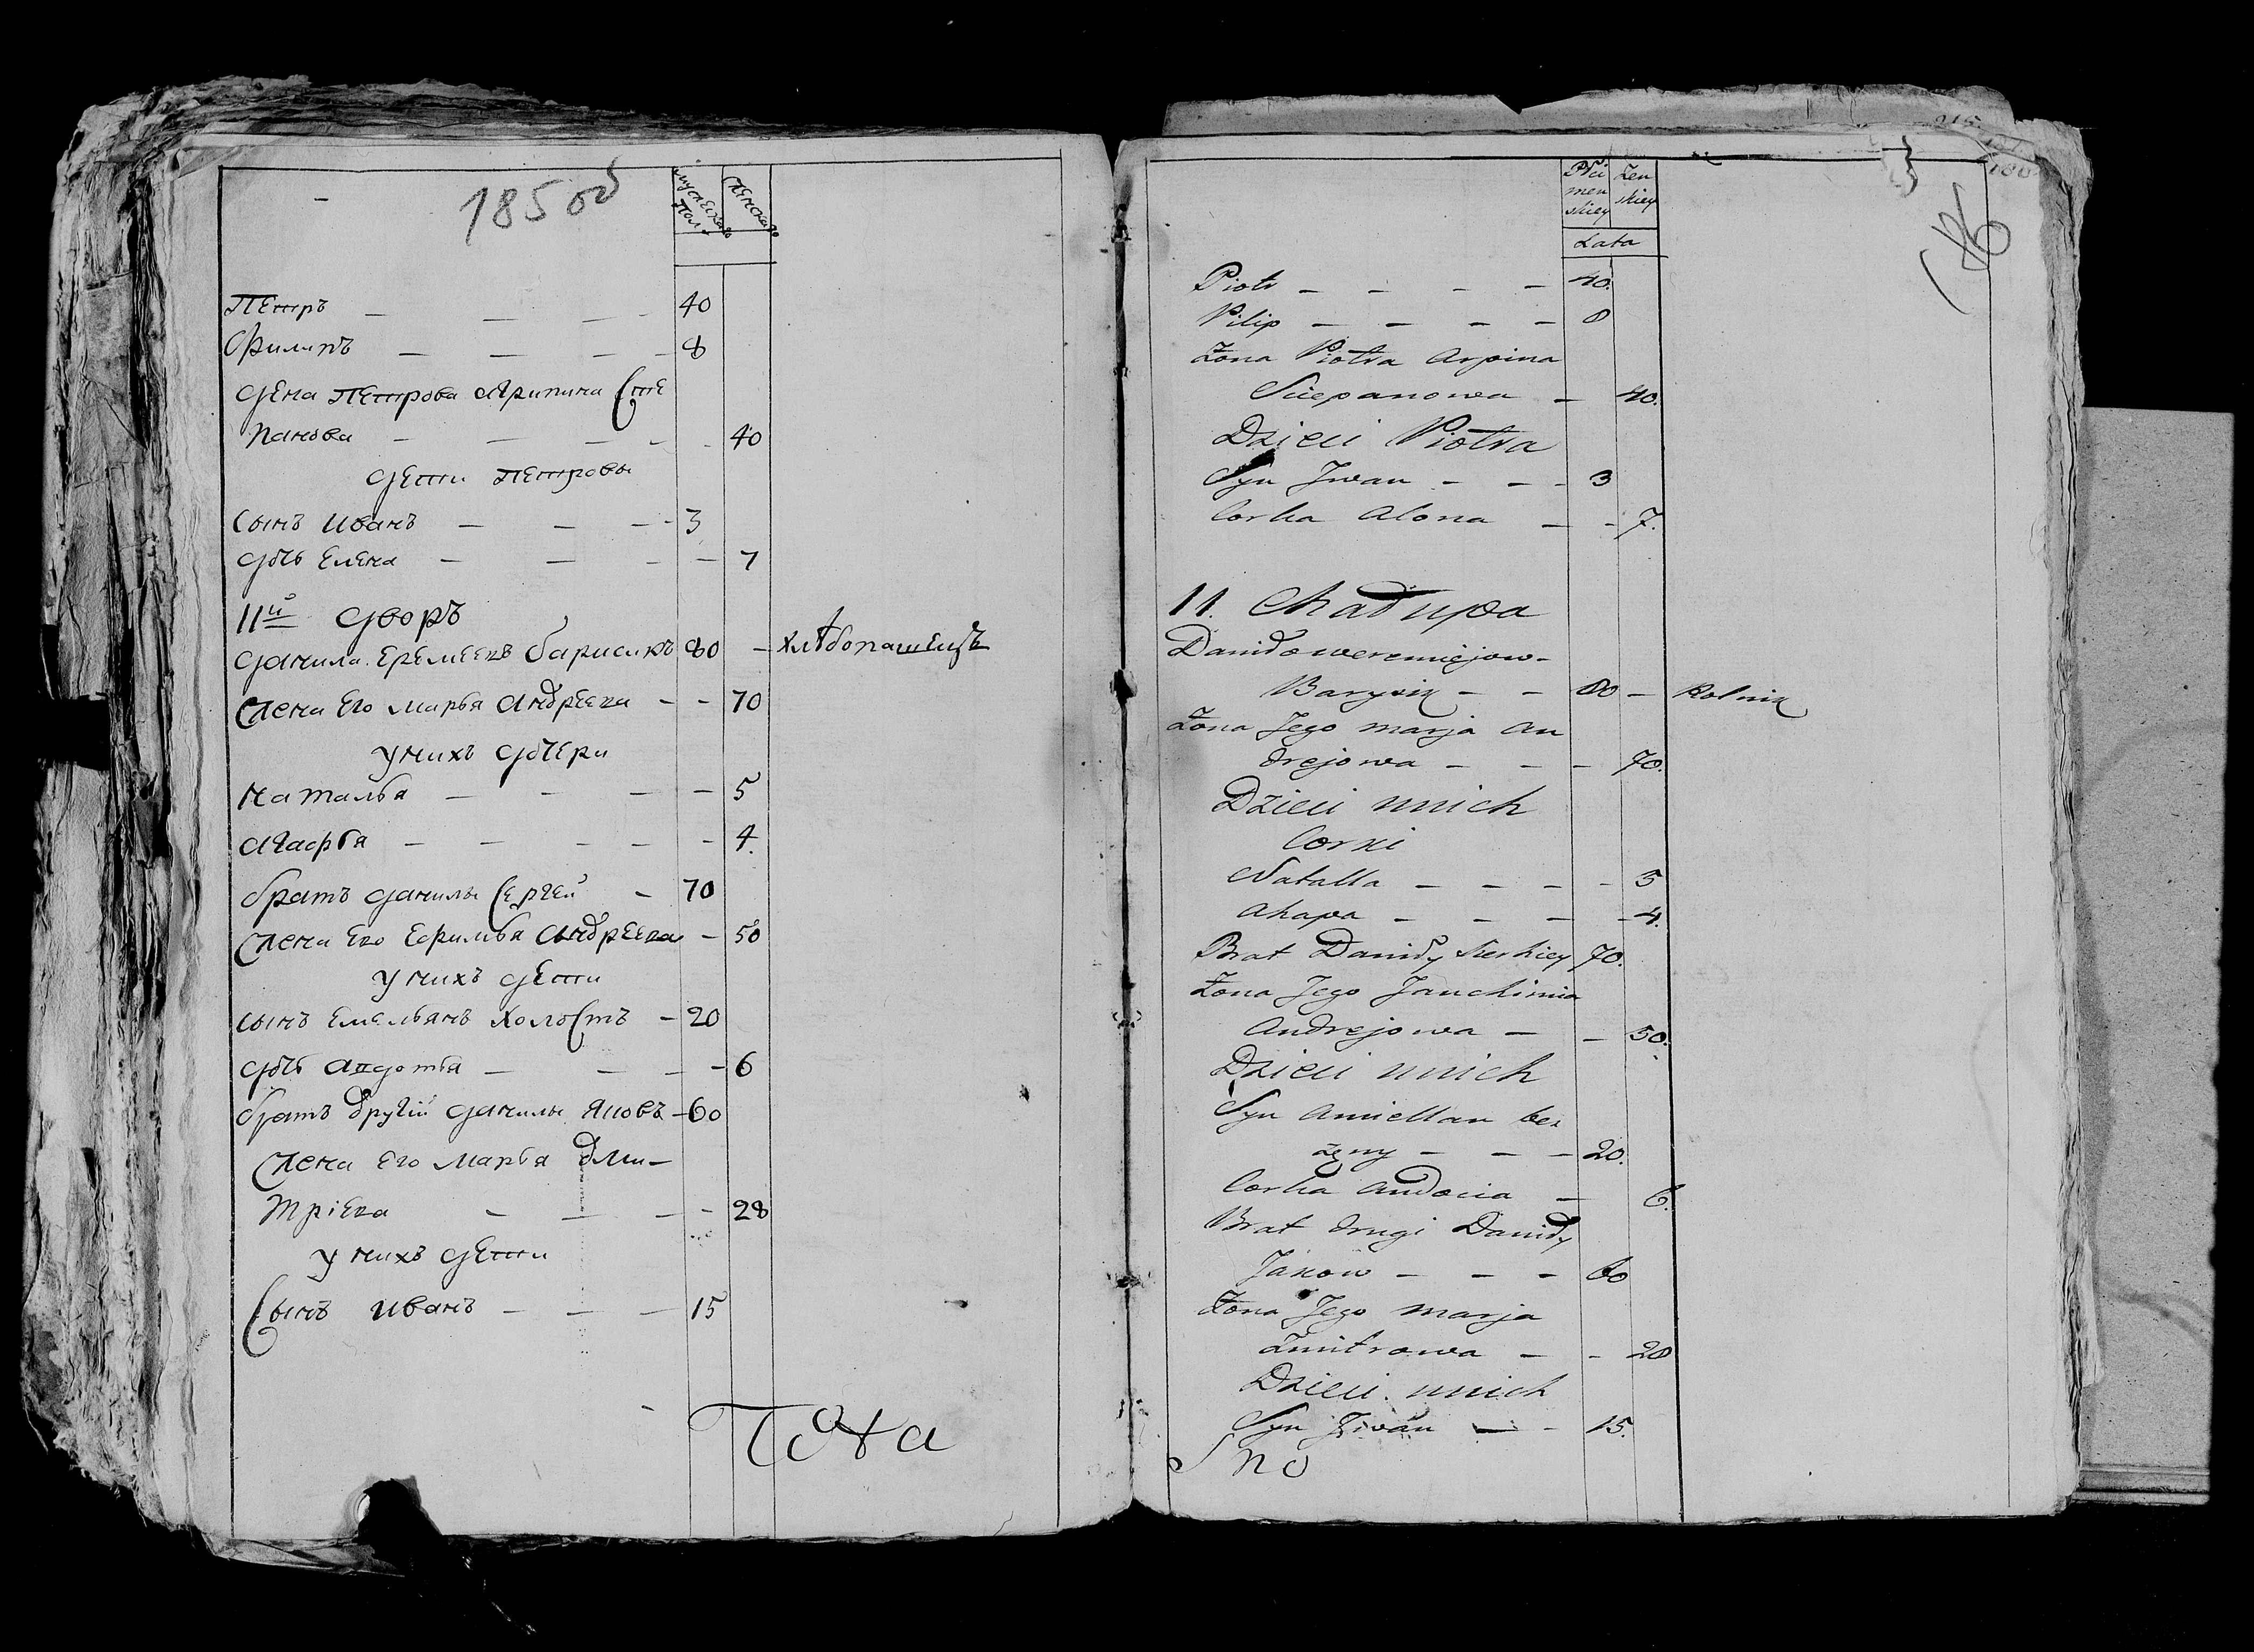 185 об
мужеска полу
женска
Петръ — — — — 40
Филипъ — — — — 8
жена Петрова Агрипина Сте
панова — — — — 40
дети Петровы
сынъ Иванъ — — — 3
дочь Елена — — — — 7
11й дворъ
Данила Еремеевъ Барисикъ 80 — хлѣбопашецъ
жена Его Марья Андреева — — 70
у нихъ дочери
Наталья — — — — 5
Агафья — — — — — 4.
братъ Данилы Сергей — 70
жена Его Ефимья Андреева — 50
у нихъ дети
сынъ Емельянъ холостъ — 20
дочь Авдотья — — — — 6
братъ другій Данилы Яковъ — 60
жена Его Марья Дми—
тріева — — — — 28
у нихъ дети
Сынъ Иванъ — — — 15
Płci men skiey
Żen skiey
Lata
Piotr — — — — 40.
Pilip — — — — 8
Żona Piotra Arpina
Sciepanowa — 40.
Dzieci Piotra
Syn Jwan — — — 3
Corka Alona — — 7.
11. Chałupa
Daniło weremiejow—
Barysik — — 80 — Rolnik
Żona Jego marja an
drejowa — — — 70.
Dzieci unich
Corki
Natalla — — — — 5
Ahapa — — — — 4.
Brat Daniły Sierhiey 70.
Żona Jego Jauchimia
Andrejowa — — 50.
Dzieci unich
Syn Amiellan bez
żęny — — — 20.
Corka Audocia — 6.
Brat drugi Daniły
Jakow — — — 60
Żona Jego marja
Zmitrowa — — 28
Dzieci unich
Syn Jwan — — 15.